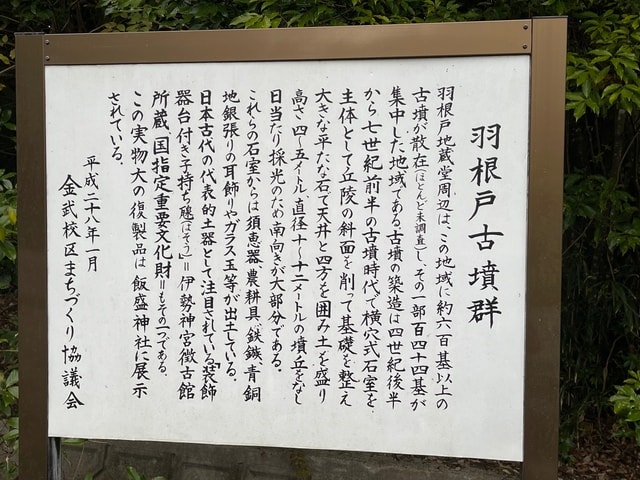 羽根戸古墳群
羽根戸地蔵堂周辺は、この地域に約六百基以上の
古墳が散在(ほとんど未調査)し、その一部百四十四基が
集中した地域である。古墳の築造は四世紀後半
から七世紀前半の古墳時代で横穴式石室を
主体として丘陵の斜面を削って基礎を整え
大きな平たな石で天井と四方を囲み土を盛り
高さ四〜五メートル、直径十〜十二メートルの墳丘をなし
日当たり採光のため南向きが大部分である。
これらの石室からは須恵器、農耕具、鉄鏃、青銅
地銀張りの耳飾りやガラス玉等が出土している。
日本古代の代表的土器として注目されている「装飾
器台付き子持ち𤭯(はそう)」=伊勢神宮徴古館
所蔵、国指定重要文化財=もその一つである。
この実物大の復製品は飯盛神社に展示
されている。
平成二十八年一月
金武校区まちづくり協議会